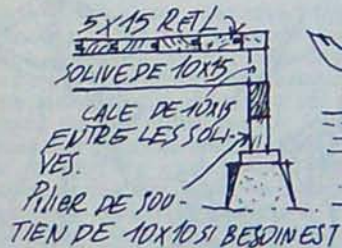 5X15 RETL
SOLIVE DE 10X15
CALE DE 10X15
ENTRE LES SOLI-
VES.
PILIER DE SOU-
TIEN DE 10X10 SI BESOIN EST